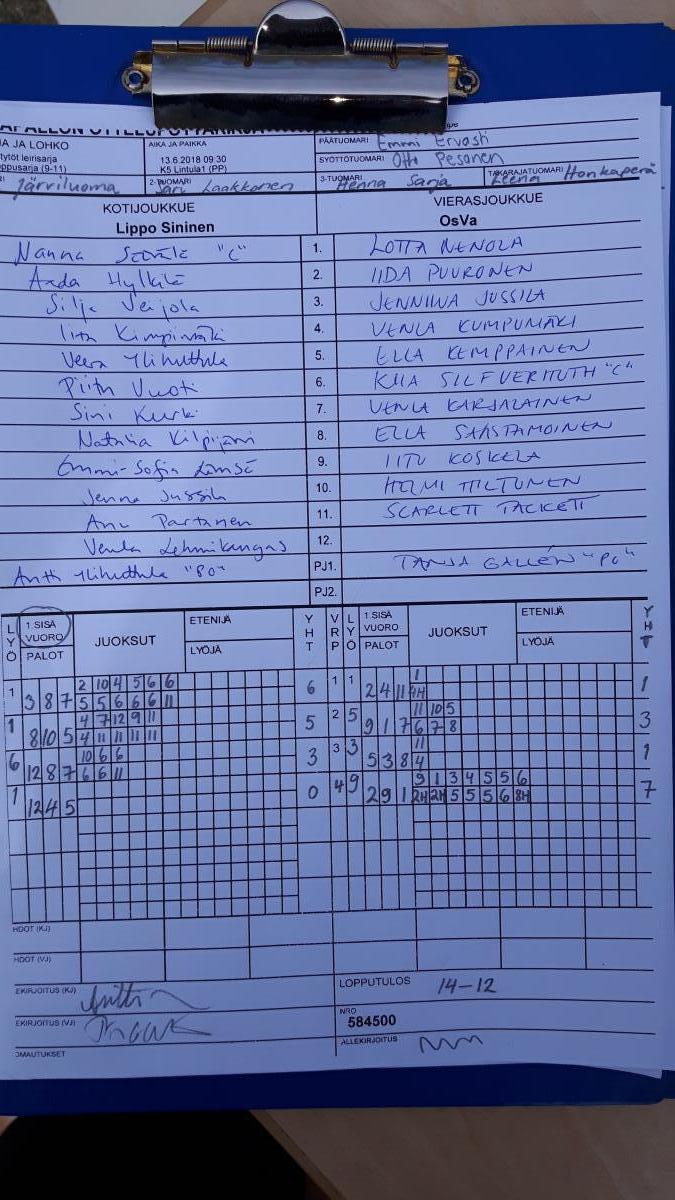 PÄÄTUOMARI Emmi Ervasti
JA JA LOHKO AIKA JA PAIKKA
tytöt leirisarja 13.6.2018 09:30 SYÖTTÖTUOMARI Otto Pesonen
ppusarja (9-11) K5 Lintula1 (PP)
Järviluoma 2-TUOMARI Sari Laakkonen 3-TUOMARI Henna Sarja TAKARAJATUOMARI Leena Honkaperä
KOTIJOUKKUE VIERASJOUKKUE
Lippo Sininen OsVa
Nanna "C" 1. LOTTA NENOLA
Aada Hylkilä 2. IIDA PUURONEN
Silja Veijola 3. JENNIINA JUSSILA
Iita Kimpimäki 4. VENLA KUMPUMÄKI
Veera Ylihuttula 5. ELLA KEMPPAINEN
Piita Vuoti 6. KIIA SILFVERHUTH "C"
Sini Kurki 7. VENLA KARJALAINEN
Natalia Kilpijärvi 8. ELLA SAASTAMOINEN
Emmi-Sofia Lämsä 9. IITU KOSKELA
Jenna Jussila 10. HELMI TILTUNEN
Anu Partanen 11. SCARLETT TACKETT
Venla Lehmikangas 12.
Antti Ylihuttula "PO" PJ1. TANJA GALLÉN "PO"
PJ2.
LYÖ 1.SISÄ VUORO PALOT JUOKSUT ETENIJÄ LYÖJÄ YHT VRP LYÖ 1.SISÄ VUORO PALOT JUOKSUT ETENIJÄ LYÖJÄ YHT
2 10 4 5 6 6 1
1 3 8 7 5 5 6 6 6 11 6 1 1 2 4 11 4H 1
4 7 12 9 11 11 10 5
1 8 10 5 4 11 11 11 11 5 2 5 9 1 7 6 7 8 3
10 6 6 11
6 12 8 7 6 6 11 3 3 3 5 3 8 4 1
9 1 3 4 5 5 6
1 12 4 5 0 4 9 2 9 1 2H 2H 5 5 5 6 8H 7
HDOT (KJ)
HDOT (VJ)
EKIRJOITUS (KJ) LOPPUTULOS 14-12
EKIRJOITUS (VJ) NRO
584500
OMAUTUKSET ALLEKIRJOITUS